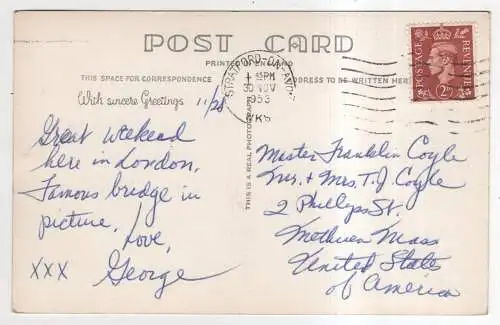 POST CARD
PRINTED IN
THIS SPACE FOR CORRESPONDENCE
ADDRESS TO BE WRITTEN HERE
With sincere Greetings
STRATFORD-ON-AVON
45PM
30 NOV
1953
POSTAGE
REVENUE
2D
THIS IS A REAL PHOTOGRAPH
11/28
Great weekend
here in London,
Famous bridge in
picture.
Love,
xxx George
Master Franklin Coyle
Mr. + Mrs. T. J. Coyle
2 Phillips St.
Methuen Mass
United States
of America